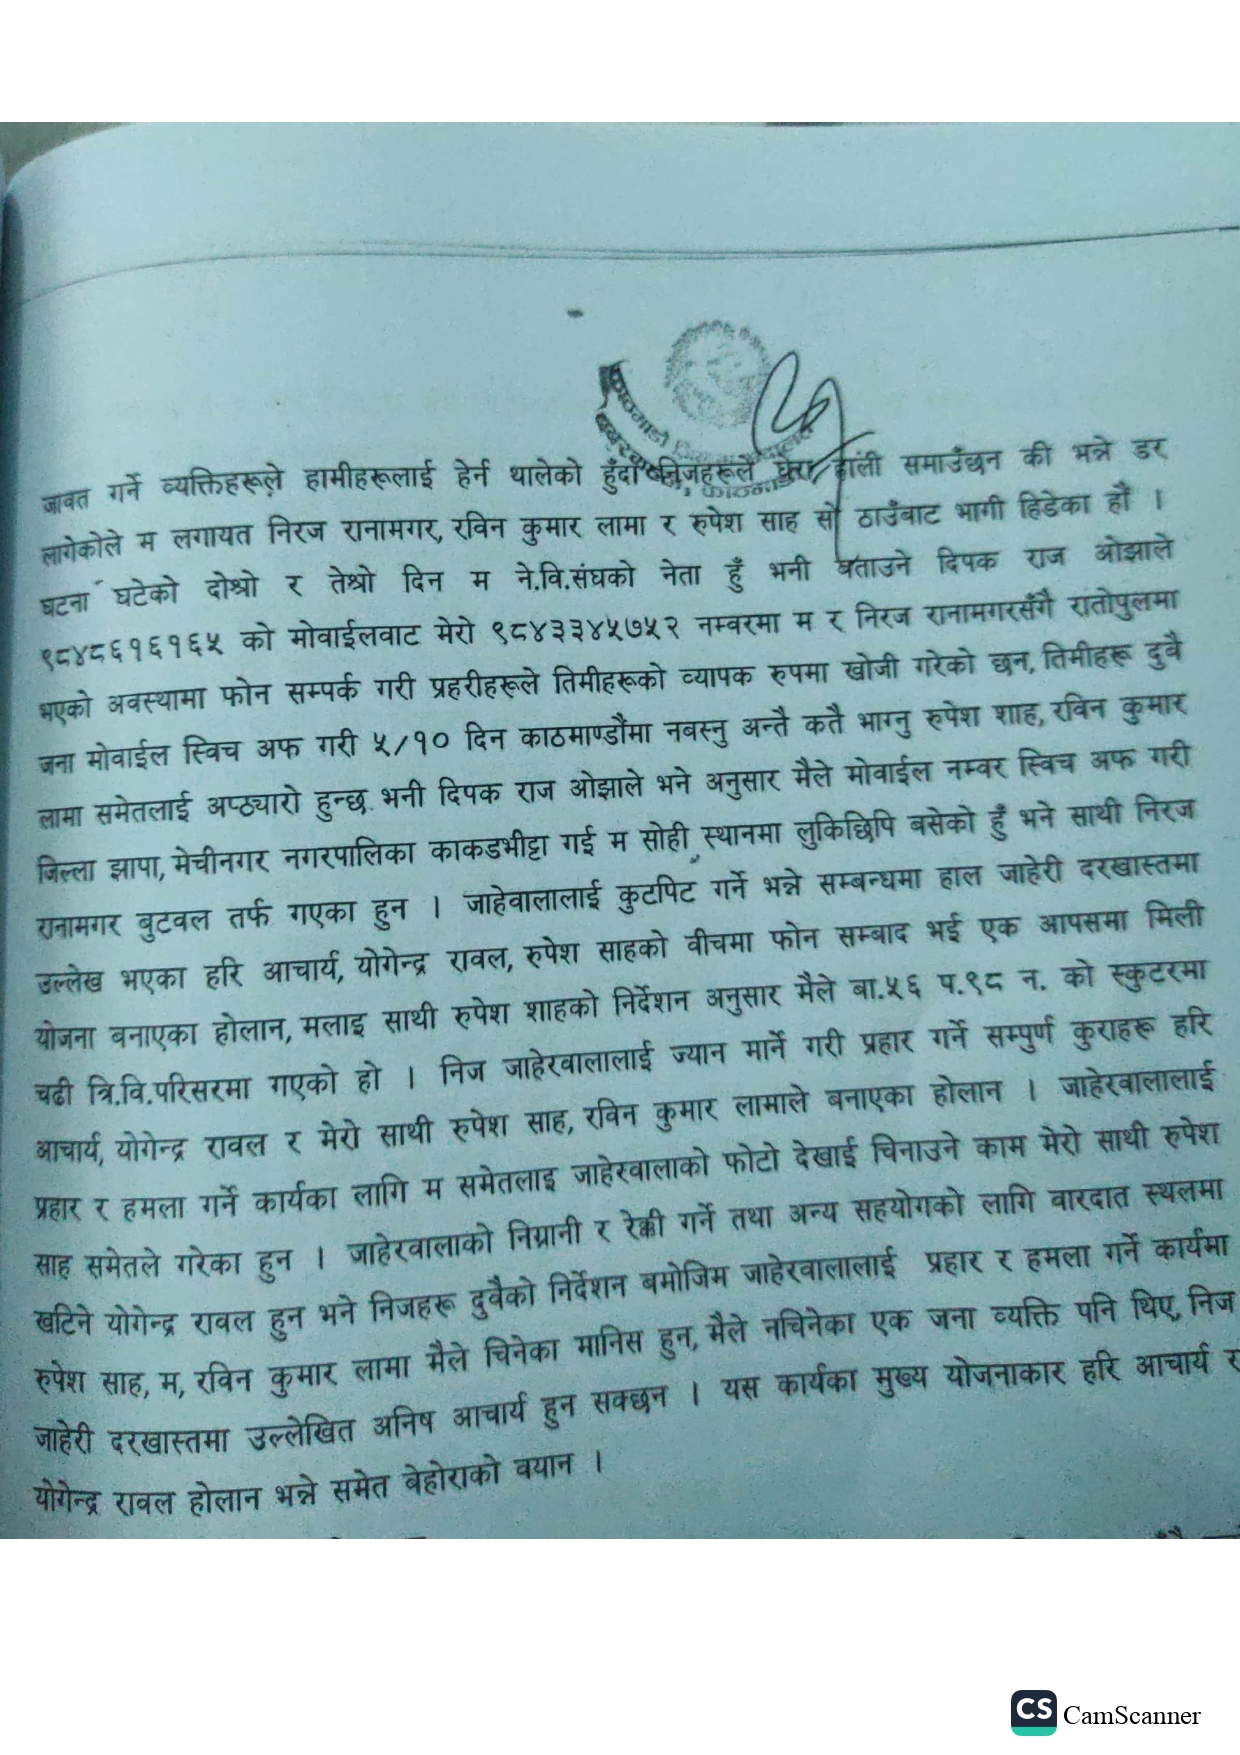 जावत गर्ने व्यक्तिहरूले हामीहरूलाई हेर्न थालेको हुँदा निजहरूले घेरा हाली समाउँछन की भन्ने डर
लागेकोले म लगायत निरज रानामगर, रविन कुमार लामा र रुपेश साह सो ठाउँबाट भागी हिडेका हौं ।
घटना घटेको दोश्रो र तेश्रो दिन म ने.वि.संघको नेता हुँ भनी बताउने दिपक राज ओझाले
९८४८६१६१६५ को मोवाईलवाट मेरो ९८४३३४५७५२ नम्वरमा म र निरज रानामगरसँगै रातोपुलमा
भएको अवस्थामा फोन सम्पर्क गरी प्रहरीहरूले तिमीहरूको व्यापक रुपमा खोजी गरेको छन, तिमीहरू दुवै
जना मोवाईल स्विच अफ गरी ५/१० दिन काठमाण्डौंमा नवस्नु अन्तै कतै भाग्नु रुपेश शाह, रविन कुमार
लामा समेतलाई अप्ठ्यारो हुन्छ भनी दिपक राज ओझाले भने अनुसार मैले मोवाईल नम्वर स्विच अफ गरी
जिल्ला झापा, मेचीनगर नगरपालिका काकडभीट्टा गई म सोही स्थानमा लुकिछिपि बसेको हुँ भने साथी निरज
रानामगर बुटवल तर्फ गएका हुन । जाहेवालालाई कुटपिट गर्ने भन्ने सम्बन्धमा हाल जाहेरी दरखास्तमा
उल्लेख भएका हरि आचार्य, योगेन्द्र रावल, रुपेश साहको वीचमा फोन सम्बाद भई एक आपसमा मिली
योजना बनाएका होलान, मलाइ साथी रुपेश शाहको निर्देशन अनुसार मैले बा.५६ प.९८ न. को स्कुटरमा
चढी त्रि.वि.परिसरमा गएको हो । निज जाहेरवालालाई ज्यान मार्ने गरी प्रहार गर्ने सम्पुर्ण कुराहरू हरि
आचार्य, योगेन्द्र रावल र मेरो साथी रुपेश साह, रविन कुमार लामाले बनाएका होलान । जाहेरवालालाई
प्रहार र हमला गर्ने कार्यका लागि म समेतलाइ जाहेरवालाको फोटो देखाई चिनाउने काम मेरो साथी रुपेश
साह समेतले गरेका हुन । जाहेरवालाको निग्रानी र रेक्की गर्ने तथा अन्य सहयोगको लागि वारदात स्थलमा
खटिने योगेन्द्र रावल हुन भने निजहरू दुवैको निर्देशन बमोजिम जाहेरवालालाई प्रहार र हमला गर्ने कार्यमा
रुपेश साह, म, रविन कुमार लामा मैले चिनेका मानिस हुन, मैले नचिनेका एक जना व्यक्ति पनि थिए, निज
जाहेरी दरखास्तमा उल्लेखित अनिष आचार्य हुन सक्छन । यस कार्यका मुख्य योजनाकार हरि आचार्य र
योगेन्द्र रावल होलान भन्ने समेत बेहोराको वयान ।
CS CamScanner